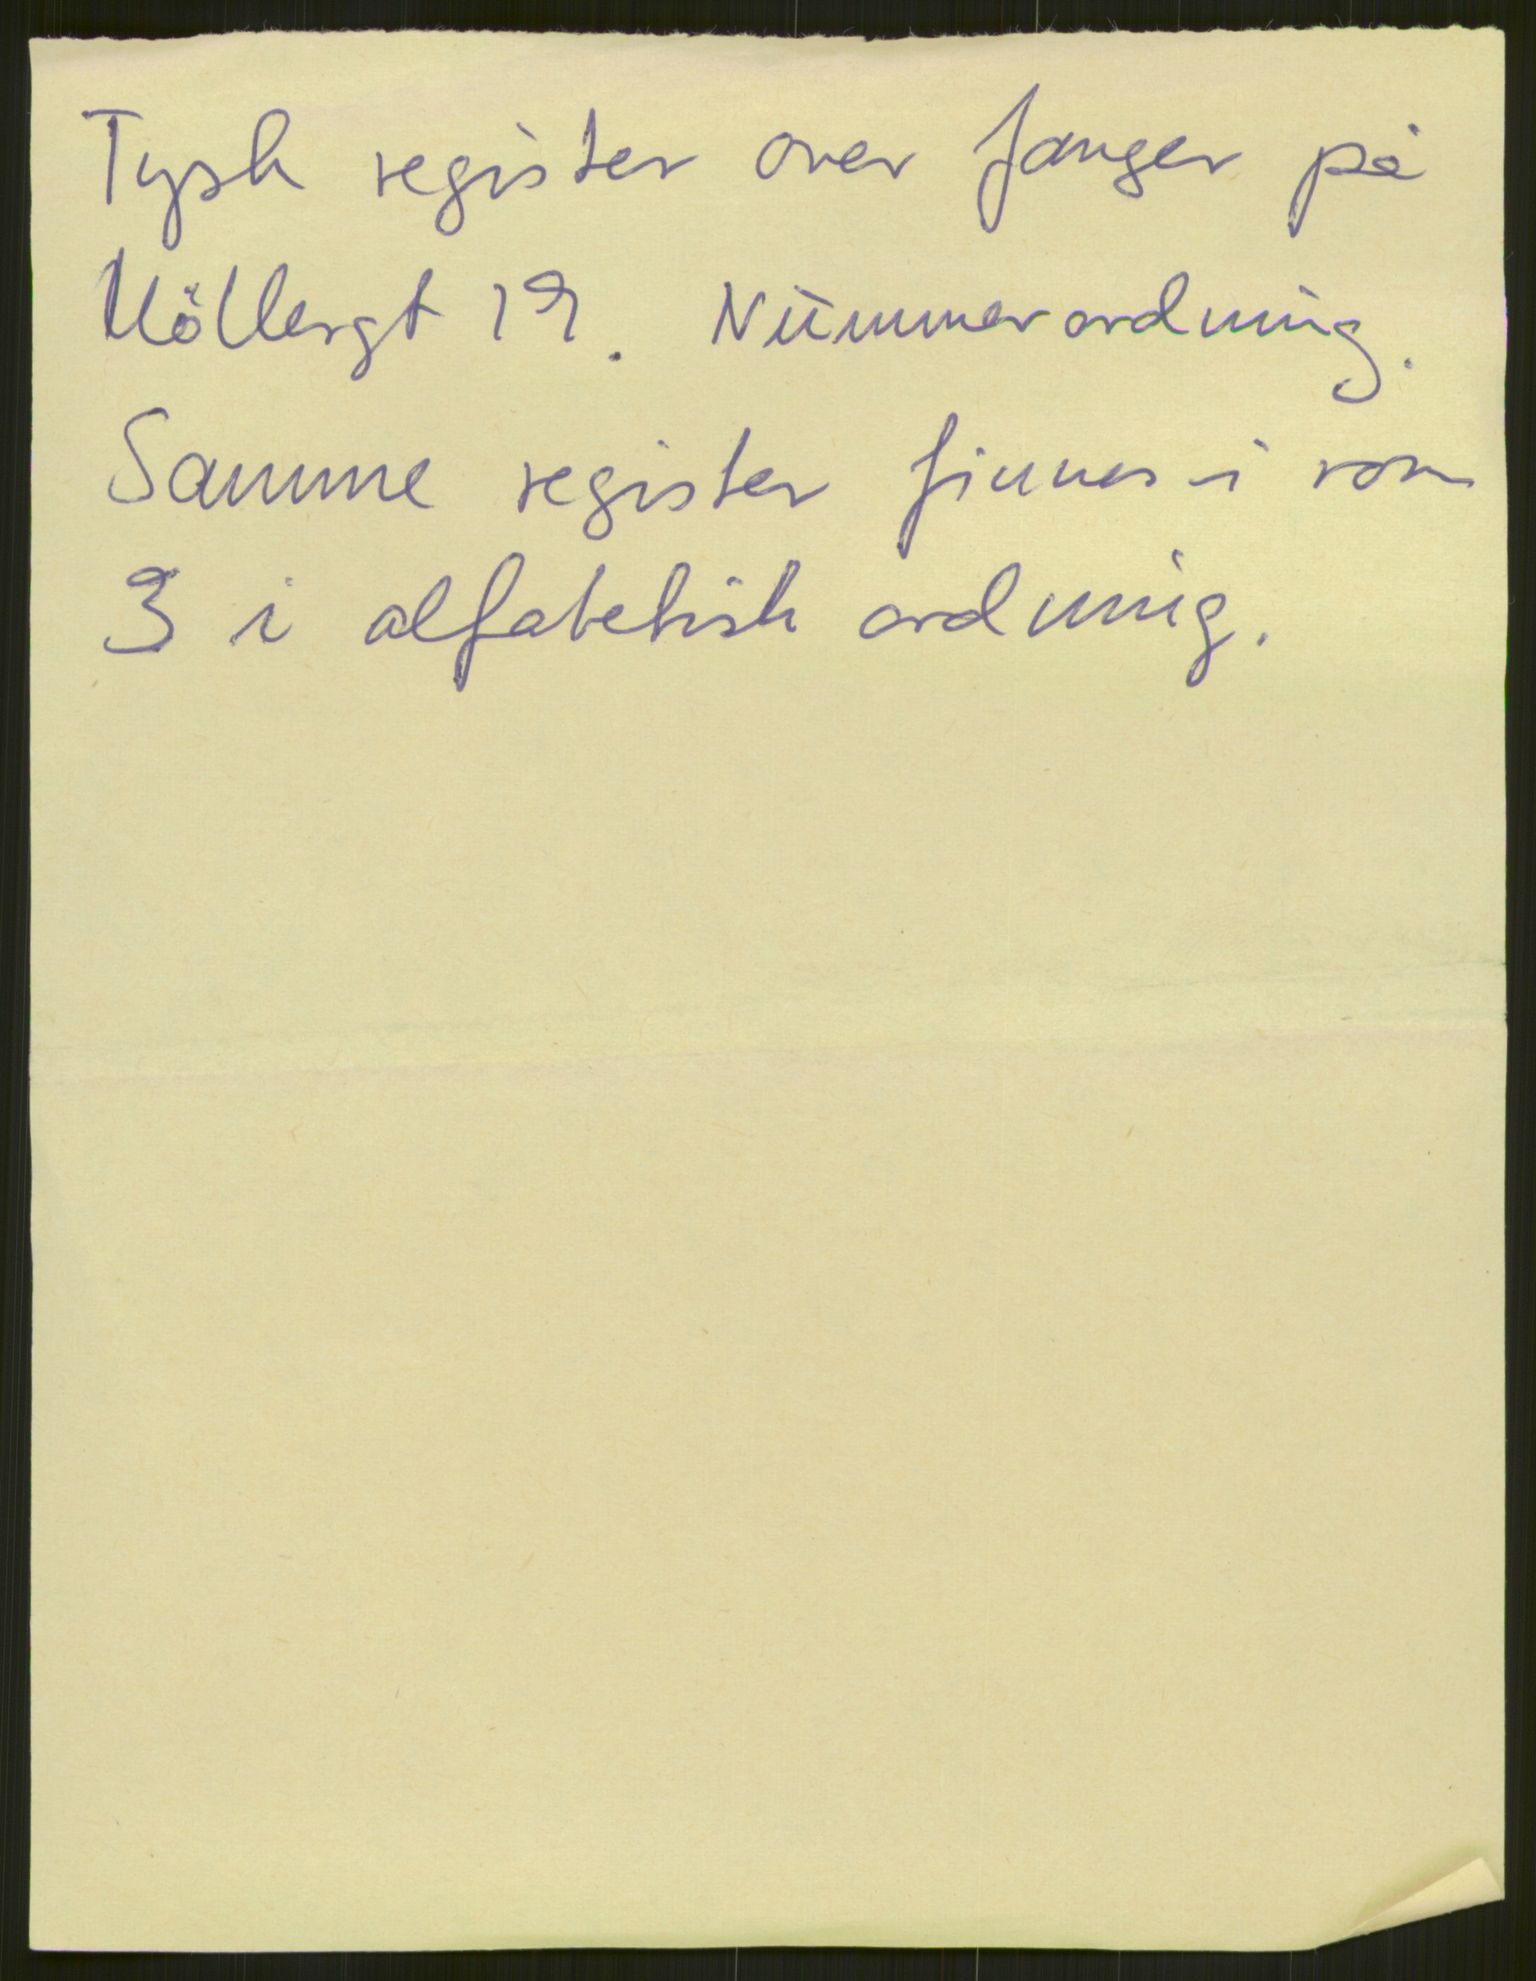 Tysk register over fanger på
Möllergt 19. Nummerordning.
Samme register finnes i rom
3 i alfabetisk ordning.